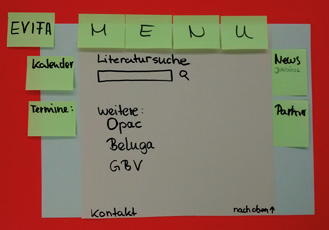 EVIFA
M E N U
Kalender
Termine:
Literatursuche
weitere:
Opac
Beluga
GBV
Kontakt
nach oben↑
News
Partner